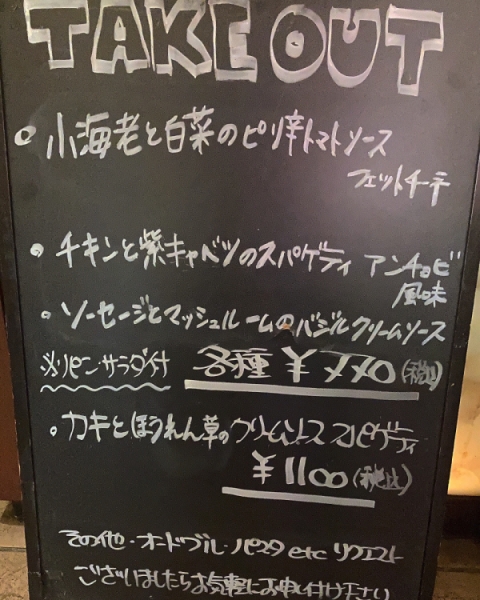 TAKE OUT
○小海老と白菜のピリ辛トマトソース
フェットチーネ
・チキンと紫キャベツのスパゲティ アンチョビ
風味
・ソーセージとマッシュルームのバジルクリームソース
※パン・サラダ付 各種 ¥770(税込)
・カキとほうれん草のクリームソース スパゲティ
¥1100(税込)
その他・オードブル・パスタ etc リクエスト
ございましたらお気軽にお申し付け下さい